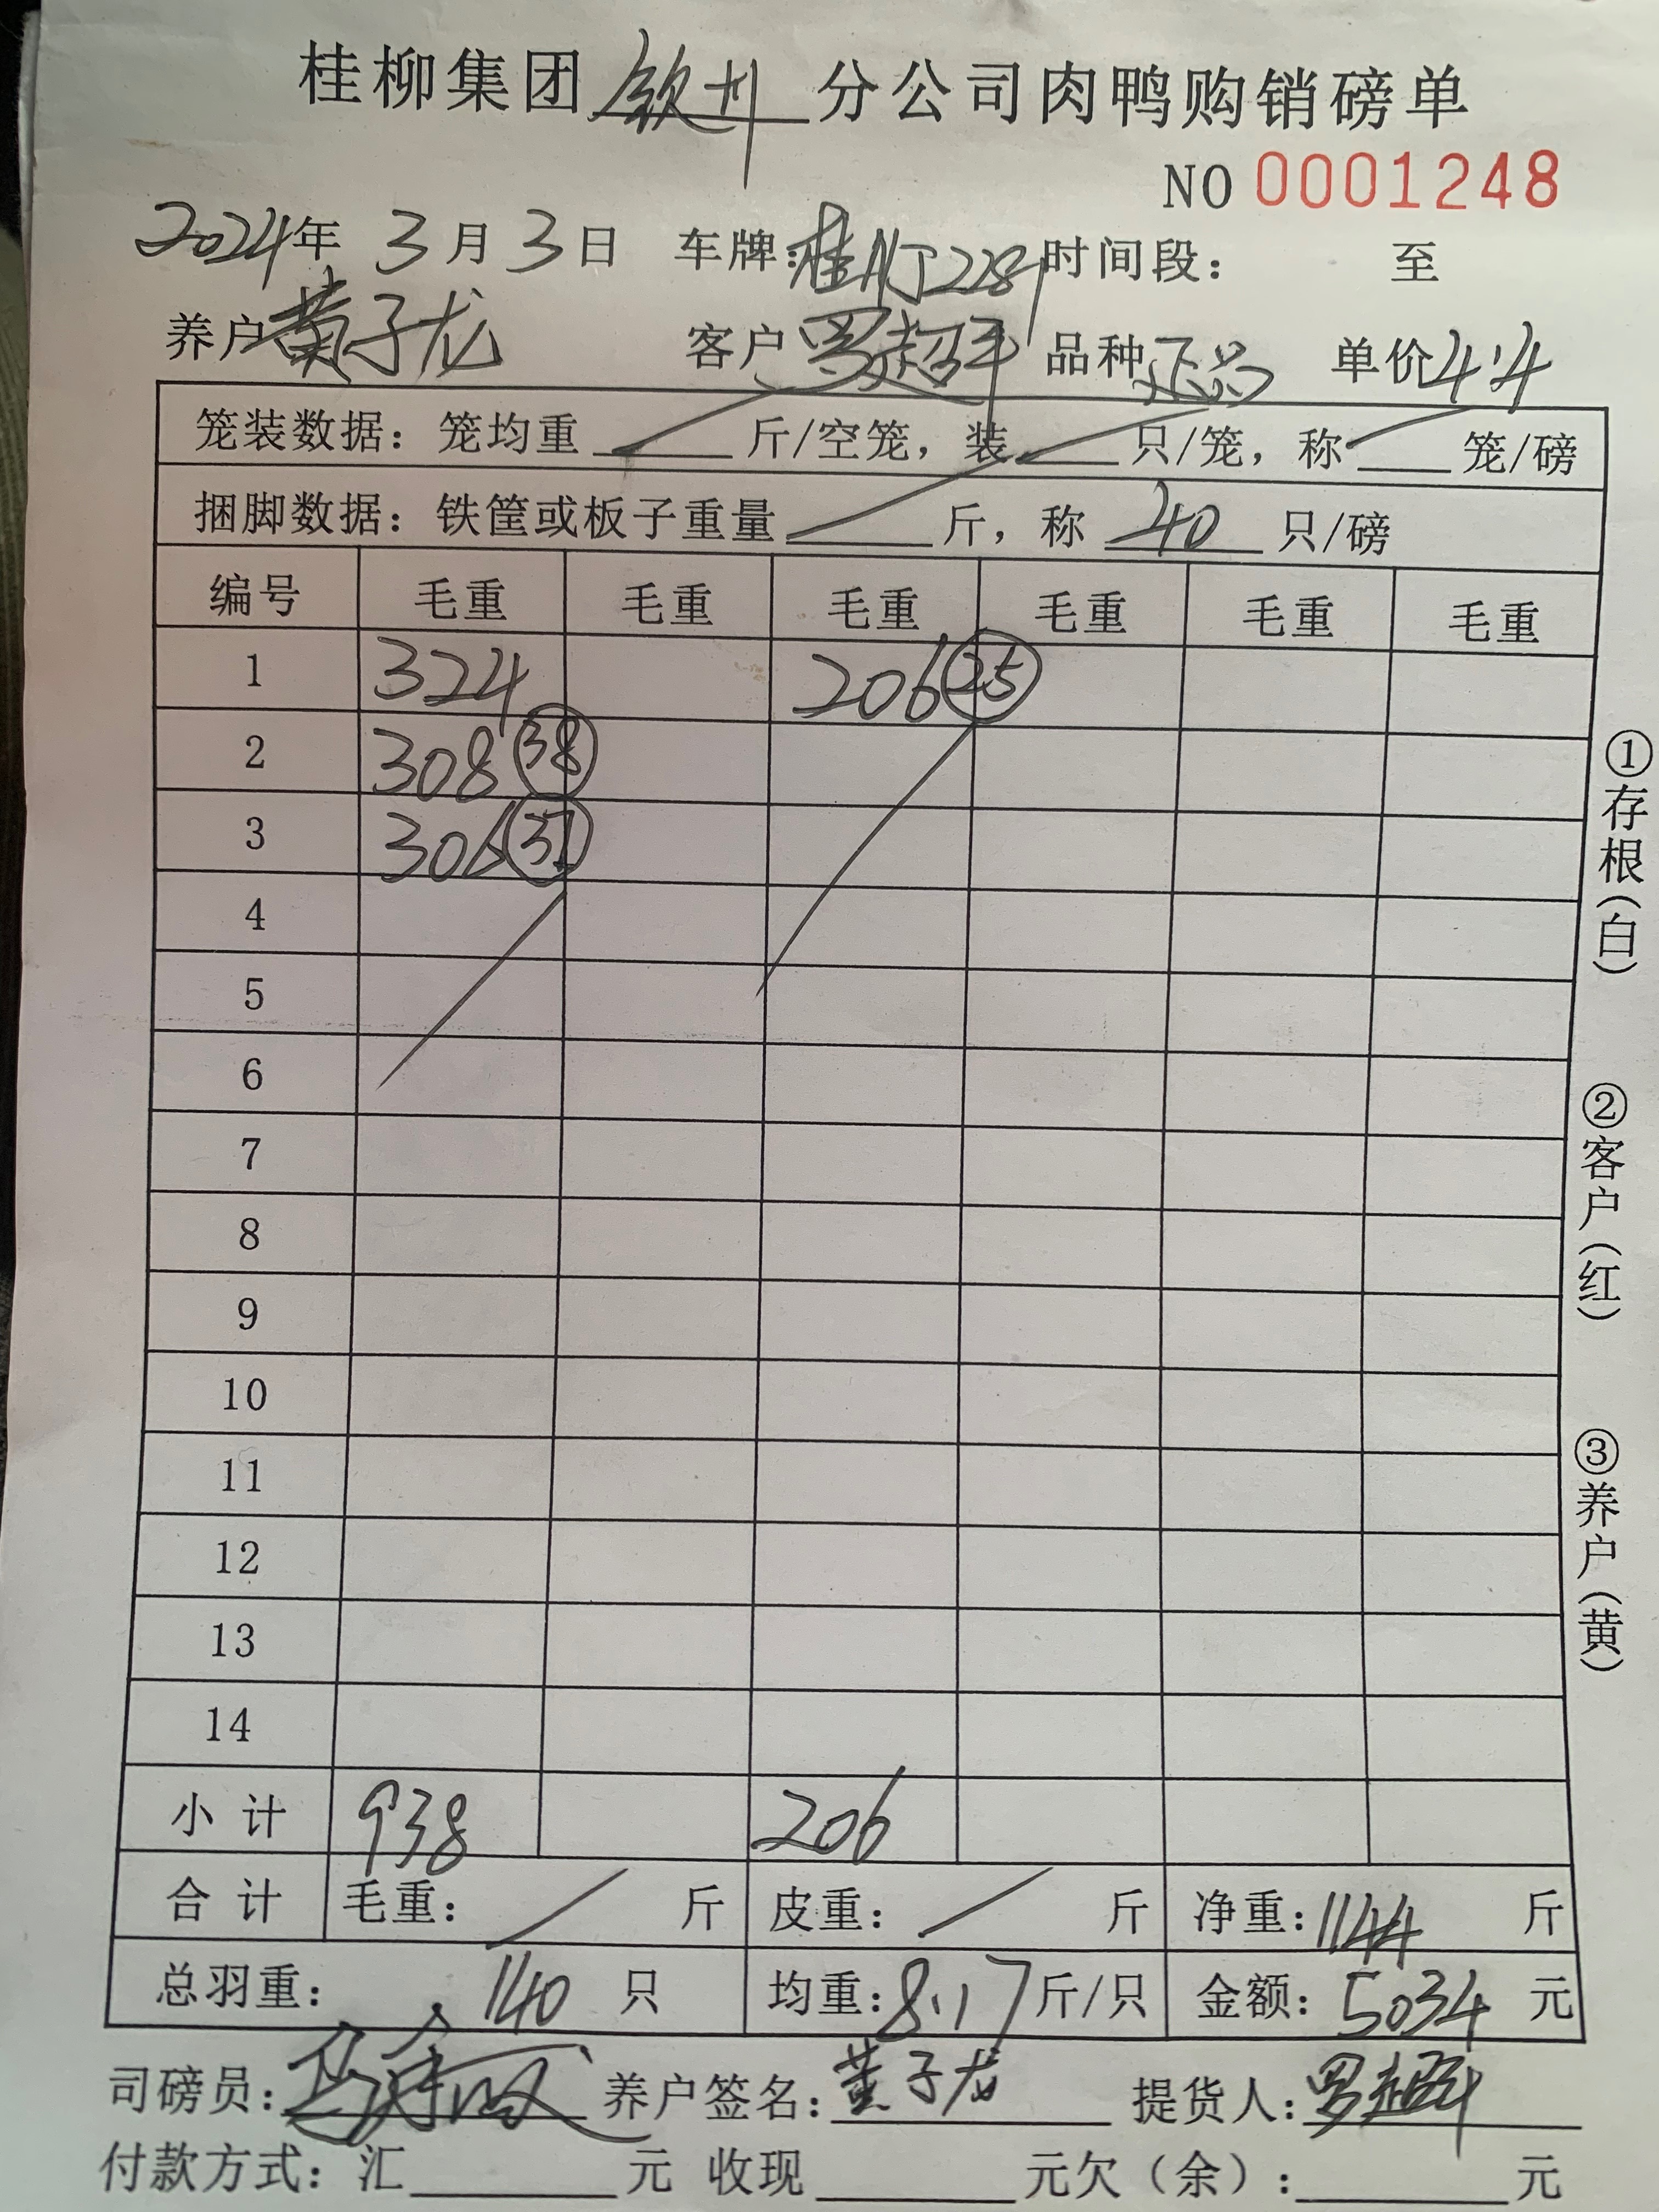 桂柳集团钦州分公司肉鸭购销磅单
NO 0001248
2024年 3月3日 车牌:桂 228 时间段: 至
养户黄子龙 客户罗超平 品种正品 单价4.4
笼装数据: 笼均重 斤/空笼, 装 只/笼, 称 笼/磅
捆脚数据: 铁筐或板子重量 斤, 称 40 只/磅
编号 毛重 毛重 毛重 毛重 毛重 毛重
1 324 206 25
2 308 38
3 306 37
4
5
6
7
8
9
10
11
12
13
14
小计 938 206
合计 毛重: / 斤 皮重: / 斤 净重: 1144 斤
总羽重: 140 只 均重: 8.17 斤/只 金额: 5034 元
司磅员: 养户签名: 黄子龙 提货人: 罗超平
付款方式: 汇 元 收现 元欠(余): 元
①存根(白)
②客户(红)
③养户(黄)